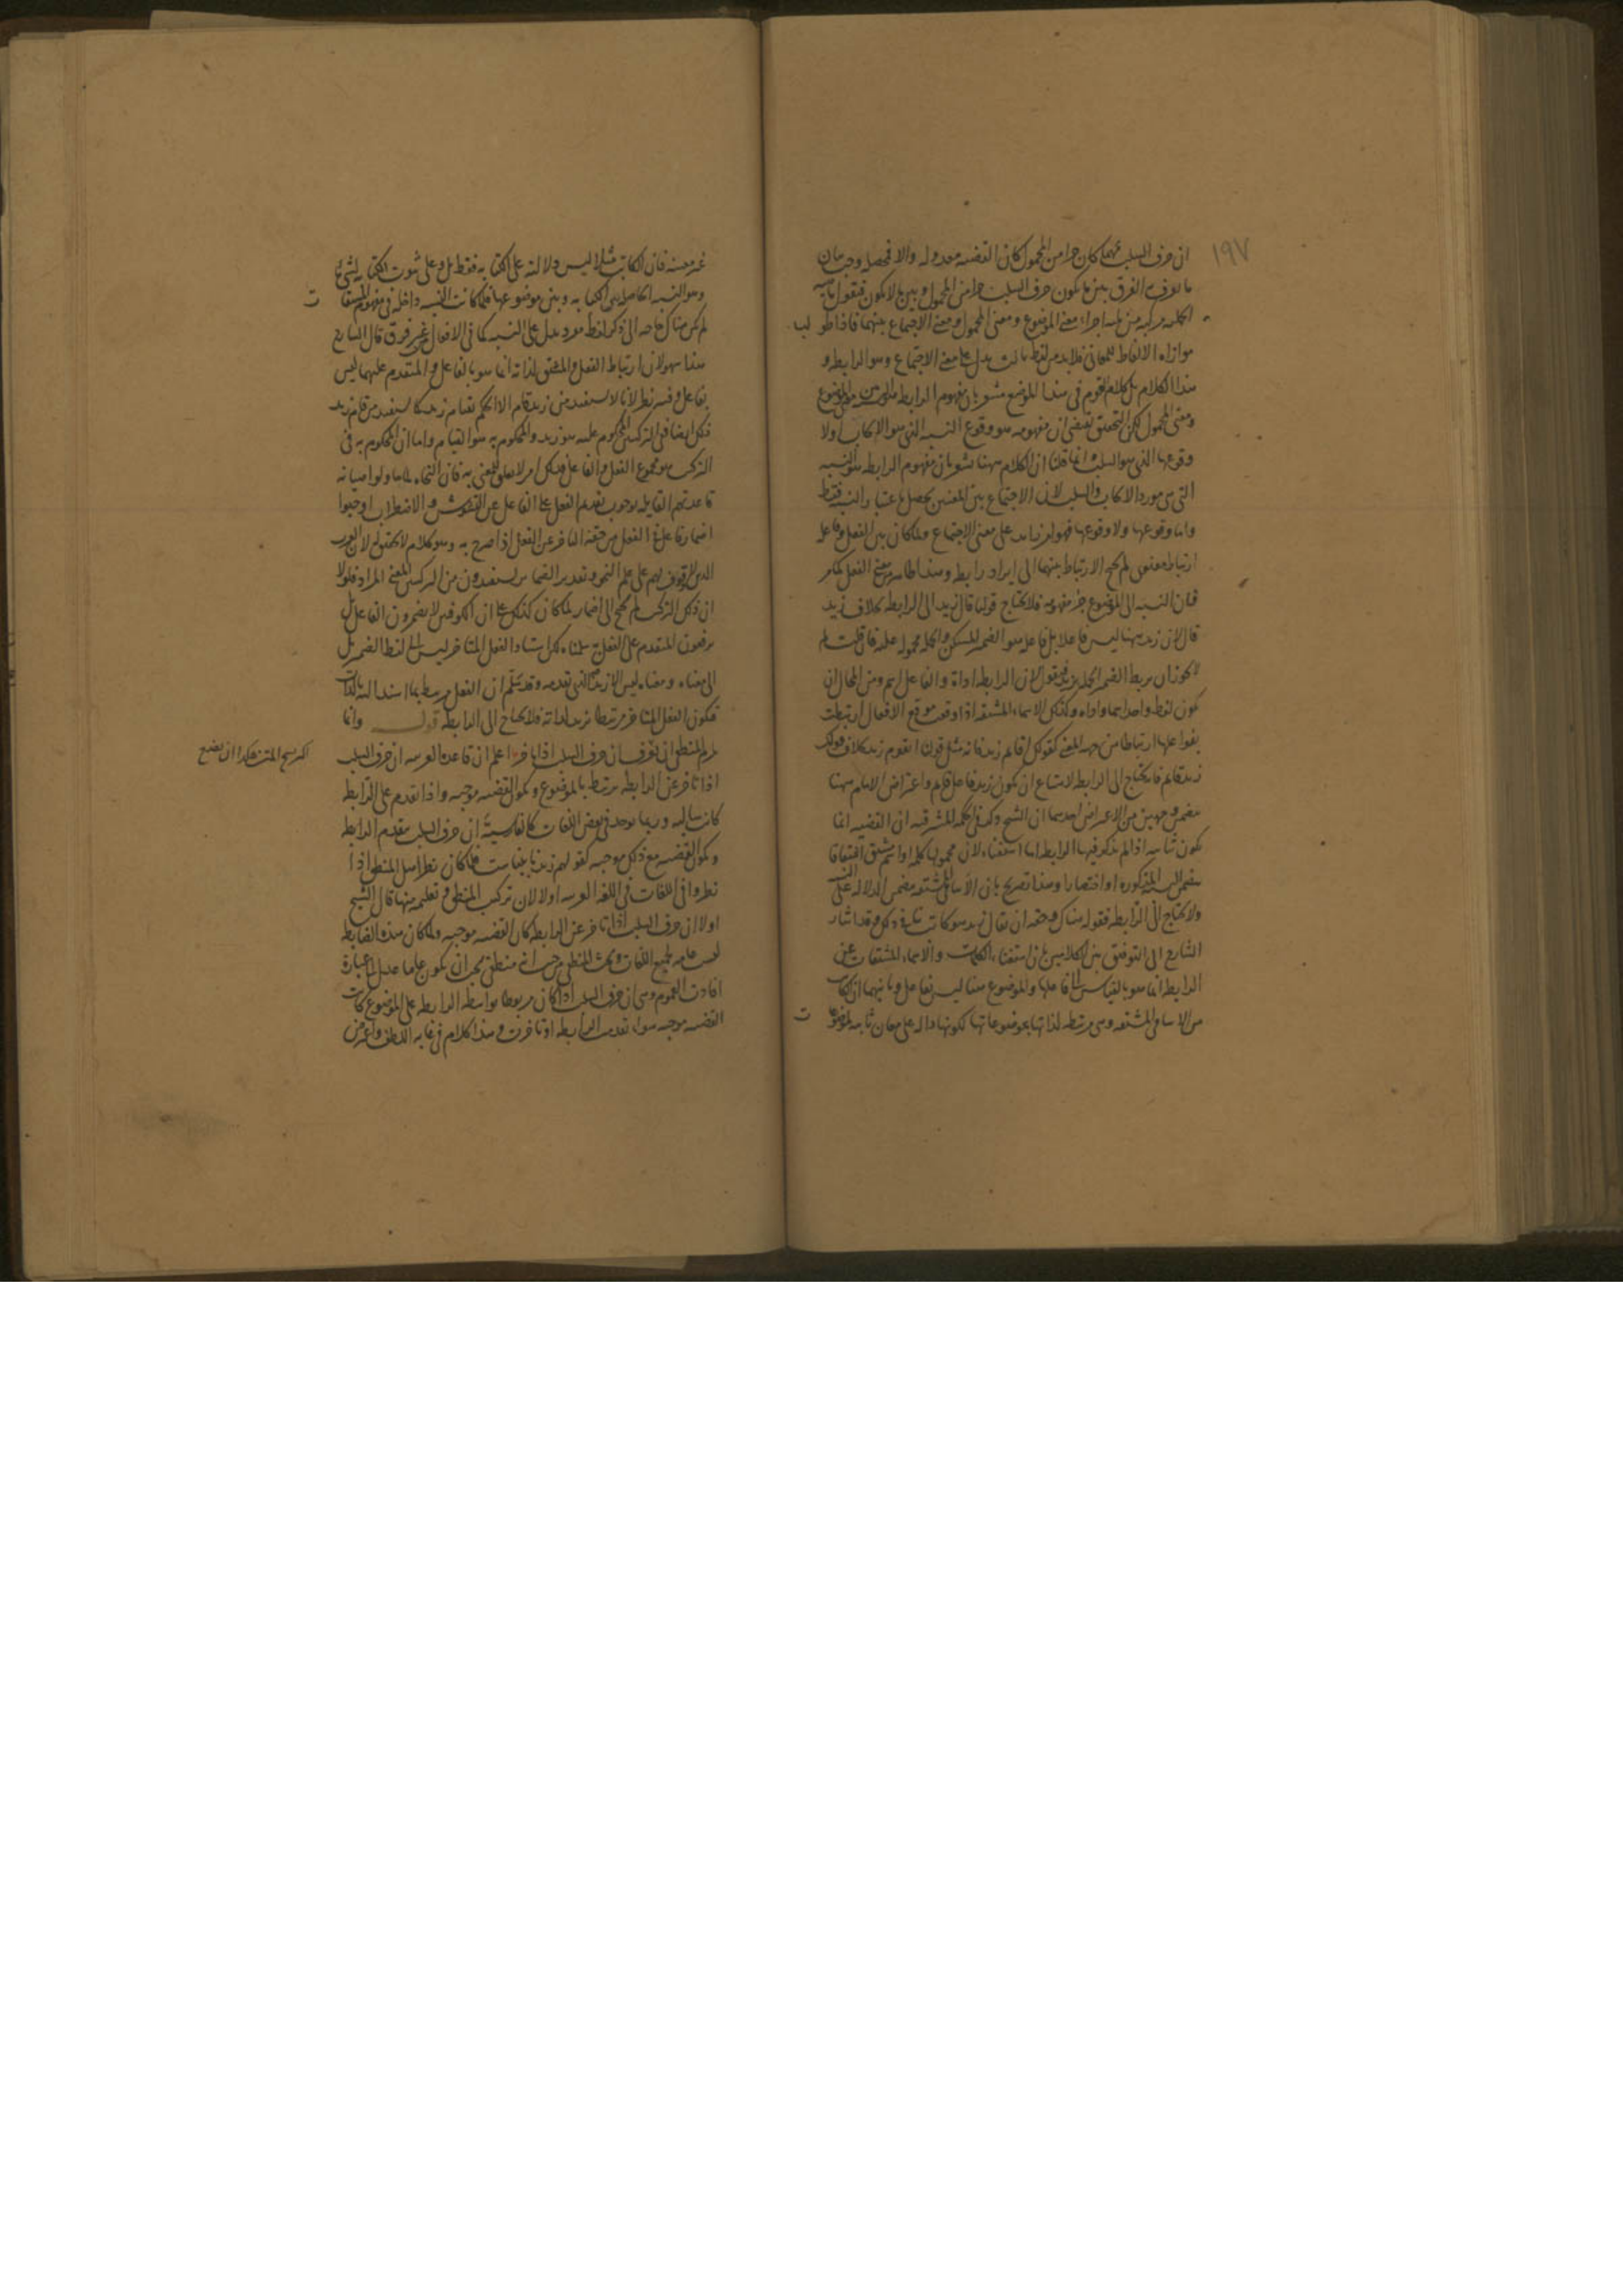 ١٩٧
ان حرف السلب مهما كان جزءا من المحمول كان القضيه معدوله والا فمحصله وجب بيان
ما يعرف به الفرق بين ما يكون حرف السلب جزءا من المحمول وبين ما لا يكون فيقول
الحمليه مركبه من ثلثه اجزاء معنى الموضوع ومعنى المحمول ومعنى الاجتماع بينهما فاذا طولب
موازاه الالفاظ للمعاني فلا بد من لفظ ثالث يدل على معنى الاجتماع وهو الرابطه و
هذا الكلام بل كلام القوم في هذا الموضع مشعر بان مفهوم الرابطه
ومعنى المحمول لكن التحقيق يقتضي ان مفهومه هو وقوع النسبه الذي هو الايجاب ولا
وقوعها الذي هو السلب وانما قلنا ان الكلام ههنا يشعر بان مفهوم الرابطه هو النسبه
التي هي مورد الايجاب والسلب لان الاجتماع بين المعنيين يحصل باعتبار النسبه فقط
واما وقوعها ولا وقوعها فهو امر زايد على معنى الاجتماع ولما كان بين الفعل وفاعله
ارتباط معنوي لم يحتج الارتباط بينهما الى ايراد رابط وهذا ظاهر من معنى الفعل
فان النسبه الى الموضوع جزء مفهومه فلا يحتاج قولنا قال زيد الى الرابطه بخلاف زيد
قال لان زيد ههنا ليس فاعلا بل فاعله هو الضمير المستكن والجمله محموله عليه فان قلت لم
لا يجوز ان يربط الضمير الجمله بزيد فنقول لان الرابطه اداة والفاعل اسم ومن المحال ان
يكون لفظ واحد اسما واداه وكذلك الاسماء المشتقه اذا وقعت موقع الافعال ارتبطت
بفواعلها ارتباطا من جهه المعنى كقولك اقايم زيد فانه مثل قولنا ايقوم زيد بخلاف قولك
زيد قايم فانه يحتاج الى الرابطه لامتناع ان يكون زيد فاعل قايم واعتراض الامام ههنا
من وجهين من الاعتراض احدهما ان الشيخ ذكر في الحكمه المشرقيه ان القضيه انما
يكون ثنائيه اذا لم يذكر فيها الرابطه اما استغناء لان محمولها كلمه او اسم مشتق
المذكوره او اختصارا وهذا تصريح بان الاسامي المشتقه متضمن الدلاله على النسبه
ولا يحتاج الى الرابطه فقوله هناك وحقه ان يقال زيد هو كاتب ذلك وقد اشار
الشارح الى التوفيق بين الكلامين بان استغناء الكلمات والاسماء المشتقات عن
الرابطه انما هو بالقياس الى فاعلها والموضوع هنا ليس بفاعل وثانيهما ان الكاتب
من الاسامي المشتقه وهي مرتبطه لذاتها بموضوعاتها لكونها داله على معان ثابته لموضوعات
غير معينه فان الكاتب مثلا ليس دلالته على الكتابه فقط بل وعلى ثبوت الكتابه لشيء ما
وهو النسبه الحاصله بين الكتابه وبين موضوعها فلما كانت النسبه داخله في مفهوم المشتقات
لم يكن هناك حاجه الى ذكر لفظ مفرد يدل على النسبه كما في الافعال من غير فرق قال الشارح
هذا سهو لان ارتباط الفعل والمشتق لذاته انما هو بالفاعل والمتقدم عليهما ليس
بفاعل وفيه نظر لانا لا نستفيد من زيد قام الا الحكم بقيام زيد كما نستفيد من قام زيد
ذلك ايضا ففي التركيبين المحكوم عليه هو زيد والمحكوم به هو القيام واما ان المحكوم به في
التركيب هو مجموع الفعل والفاعل فذلك امر لا تعلق للمعنى به فان النحاه لما حاولوا صيانه
قاعدتهم القايله بوجوب تقديم الفعل على الفاعل عن التشويش والاضطراب اوجبوا
اضمار فاعل في الفعل من حقه التاخر عن الفعل اذا صرح به وهو كلام لا يعتد به لان العرب
الذين لا وقوف لهم على علم النحو وتقدير الضماير يستفيدون من التركيب المعنى المراد فلولا
ان ذلك التركيب لم يحتج الى اضمار لما كان كذلك على ان الكوفيين لا يضمرون الفاعل بل
يرفعون المتقدم على الفعل سلمناه لكن اسناد الفعل المتاخر ليس الى لفظ الضمير بل
الى معناه ومعناه ليس الا زيد الذي تقدمه وقد سلم ان الفعل مرتبط بما اسند اليه بالذات
فيكون الفعل المتاخر مرتبطا بزيد لذاته فلا يحتاج الى الرابطه قوله وانما
يلزم المنطقي ان يعرف ان حرف السلب اذا تاخر اعلم ان قاعده العربيه ان حرف السلب
اذا تاخر عن الرابطه يرتبط بالموضوع ويكون القضيه موجبه واذا تقدم على الرابطه
كانت سالبه وربما يوجد في بعض اللغات كالفارسية ان حرف السلب مقدم الرابطه
ويكون القضيه مع ذلك موجبه كقولهم زيد نابيناست فلما كان نظر اهل المنطق اذا
نظروا في اللغات في اللغه العربيه اولا لان تركيب المنطق وتعليمه منها قال الشيخ
اولا ان حرف السلب اذا تاخر عن الرابطه كان القضيه موجبه ولما كان هذه الضابطه
ليست عامه لجميع اللغات وبحث المنطقي من حيث انه منطقي يجب ان يكون عاما عدل الى عبارة
افادت العموم وهي ان حرف السلب اذا كان مربوطا بواسطه الرابطه على الموضوع كانت
القضيه موجبه سواء تقدمت الرابطه او تاخرت وهذا كلام في غايه اللطف واعترض